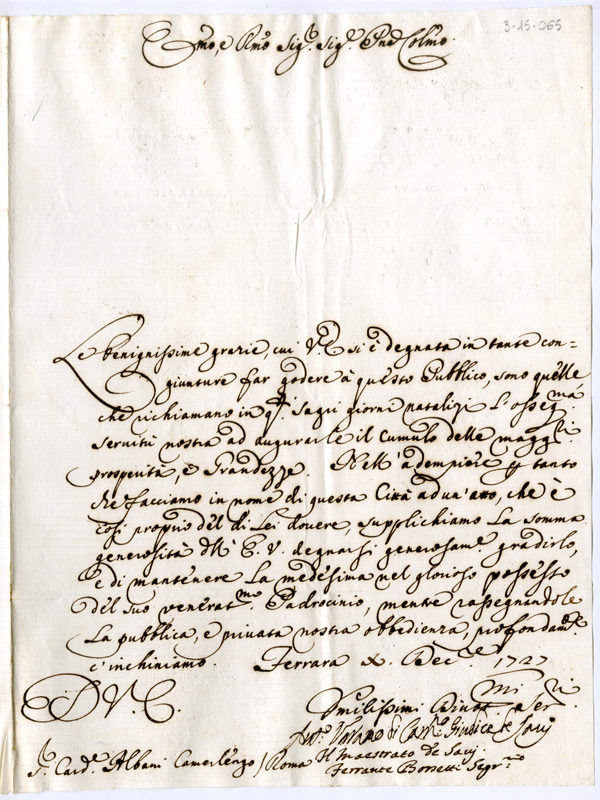 3-15-065
Emo, e Rmo Sigr. Sigr. Pne Colmo.
Le benignissime grazie, cui V.E. si è degnata in tante con=
giunture far godere à questo Publico, sono quelle
che richiamano in qti. sagri giorni natalizj L'osseqma
servitù nostra ad augurarle il Cumulo delle maggri.
prosperità, e Grandezze. Nell'adempiere p tanto
che facciamo in nome di questa Città ad un'atto, che è
così proprio del di Lei dovere, supplichiamo La somma
generosità dll' E. V. degnarsi generosame. gradirlo,
e di mantenere La medesima nel glorioso possesso
del suo veneratmo. Padrocinio, mentre rassegnandole
La pubblica, e privata nostra obbedienza, profondame.
c'inchiniamo. Ferrara Xe. 1727
D V. E.
Umilissimi Devotmi Servri
Giudice de Savj
Il Maestrato de Savj.
Sr. Cardl. Albani Camerlengo / Roma
Ferrante Borsetti Segrrio